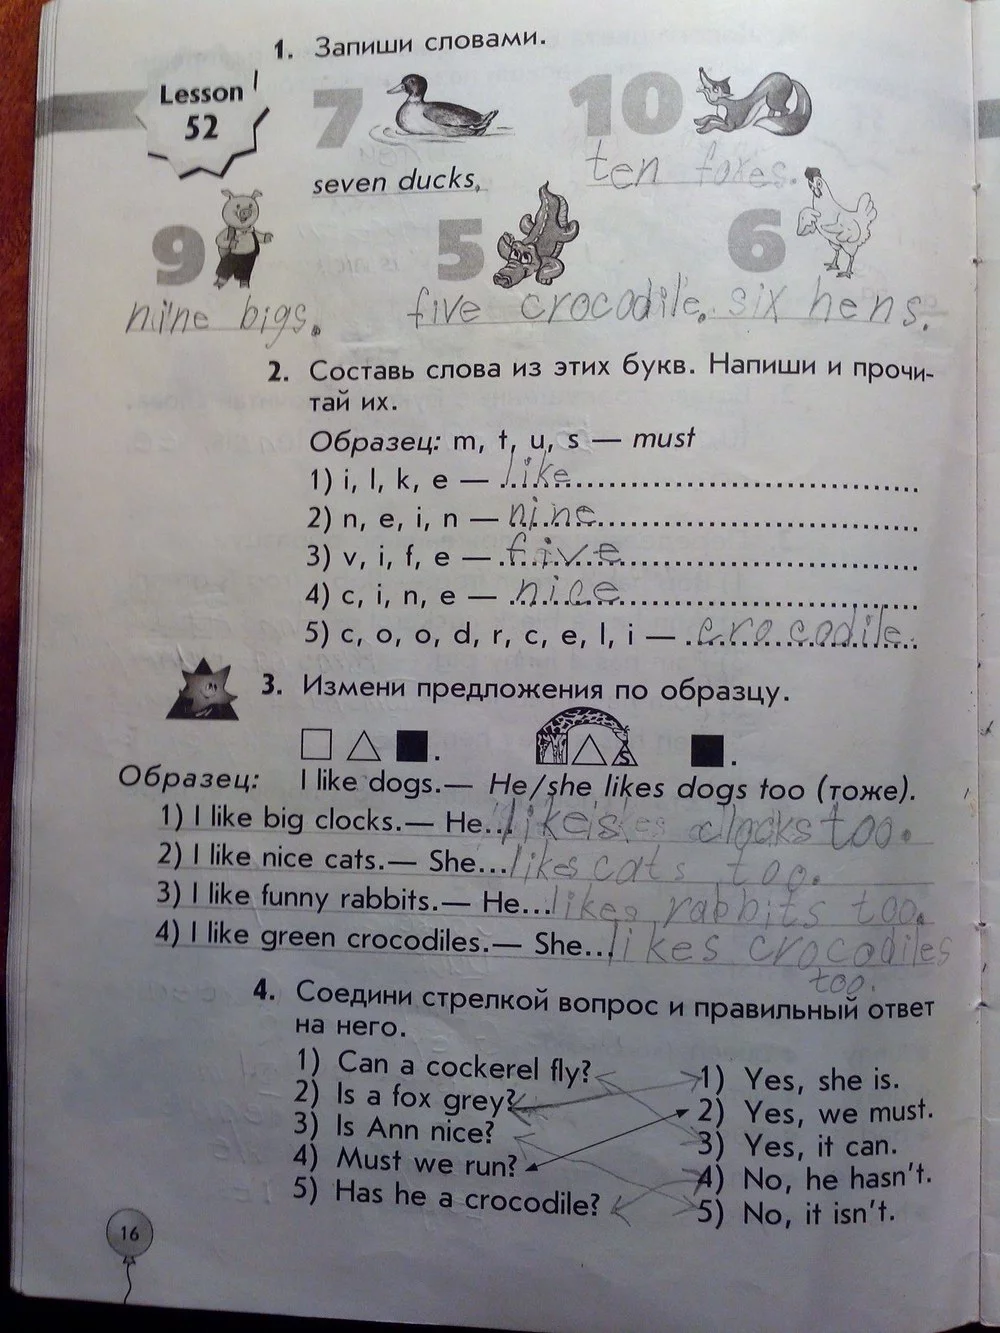 1. Запиши словами.
Lesson
52
7
10
seven ducks,
ten foxes.
9
5
6
nine bigs.
five crocodile. six hens.
2. Составь слова из этих букв. Напиши и прочи-
тай их.
Образец: m, t, u, s — must
1) i, l, k, e — like
2) n, e, i, n — nine
3) v, i, f, e — five
4) c, i, n, e — nice
5) c, o, o, d, r, c, e, l, i — crocodile
3. Измени предложения по образцу.
S
Образец: I like dogs.— He/she likes dogs too (тоже).
1) I like big clocks.— He... likes clocks too.
2) I like nice cats.— She... likes cats too.
3) I like funny rabbits.— He... likes rabbits too.
4) I like green crocodiles.— She... likes crocodiles
too.
4. Соедини стрелкой вопрос и правильный ответ
на него.
1) Can a cockerel fly? 1) Yes, she is.
2) Is a fox grey? 2) Yes, we must.
3) Is Ann nice? 3) Yes, it can.
4) Must we run? 4) No, he hasn't.
5) Has he a crocodile? 5) No, it isn't.
16